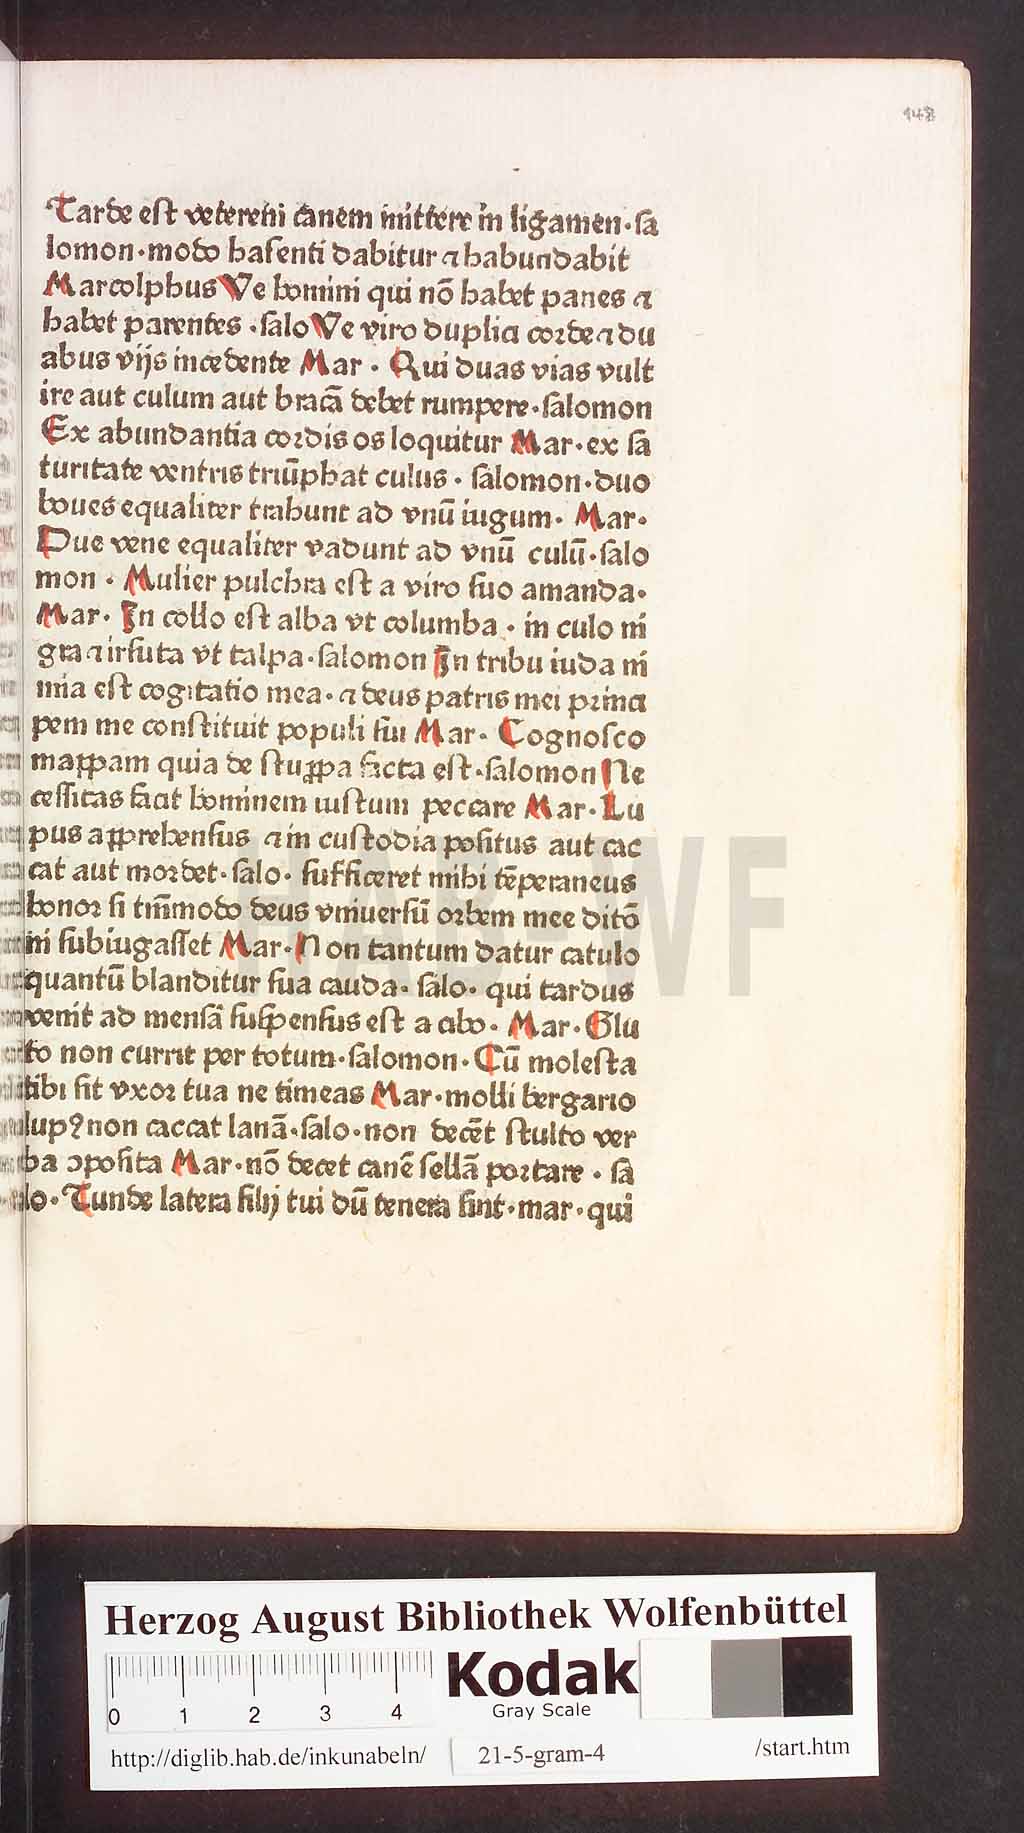 148
Tarde est veterem canem mittere in ligamen·sa
lomon·modo habenti dabitur ⁊ habundabit
Marcolphus Ve homini qui nō habet panes ⁊
habet parentes ·salo Ve viro duplici corde ⁊ du
abus vijs incedente Mar · Qui duas vias vult
ire aut culum aut bracā debet rumpere·salomon
Ex abundantia cordis os loquitur Mar·ex sa
turitate ventris triūphat culus · salomon·duo
boues equaliter trahunt ad vnū iugum· Mar·
Due vene equaliter vadunt ad vnū culū·salo
mon · Mulier pulchra est a viro suo amanda·
Mar· In collo est alba vt columba · in culo ni
gra ⁊ irsuta vt talpa·salomon In tribu iuda ni
mia est cogitatio mea· ⁊ deus patris mei princi
pem me constituit populi sui Mar· Cognosco
mappam quia de stuppa facta est·salomon Ne
cessitas facit hominem iustum peccare Mar·Lu
pus apprehensus ⁊ in custodia positus aut cac
cat aut mordet·salo· sufficeret mihi tēperaneus
honor si tm̄modo deus vniuersū orbem mee ditō
ni subiugasset Mar·Non tantum datur catulo
quantū blanditur sua cauda· salo· qui tardus
venit ad mensā suspensus est a cibo· Mar·Glu
to non currit per totum·salomon·Cū molesta
tibi sit vxor tua ne timeas Mar·molli bergario
lupꝰ non caccat lanā·salo·non decēt stulto ver
ba ↄposita Mar·nō decet canē sellā portare · sa
lo·Tunde latera filij tui dū tenera sint·mar·qui
HAB WF
Herzog August Bibliothek Wolfenbüttel
Kodak
Gray Scale
0 1 2 3 4
http://diglib.hab.de/inkunabeln/ 21-5-gram-4 /start.htm